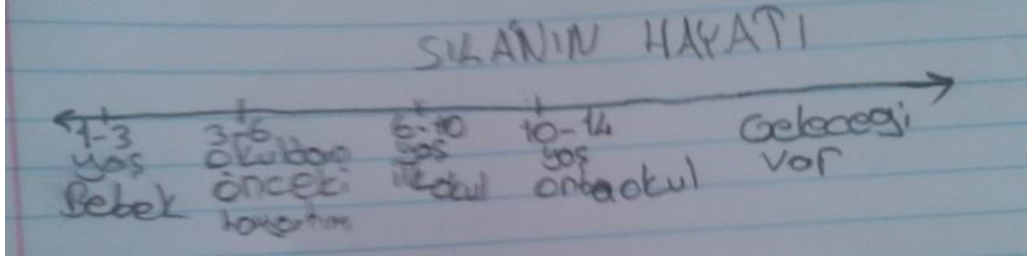 SILANIN HAYATI
1-3 yaş Bebek
3-6 okuldan önceki hayatım
6-10 yaş ilkokul
10-14 yaş ortaokul
Geleceği var